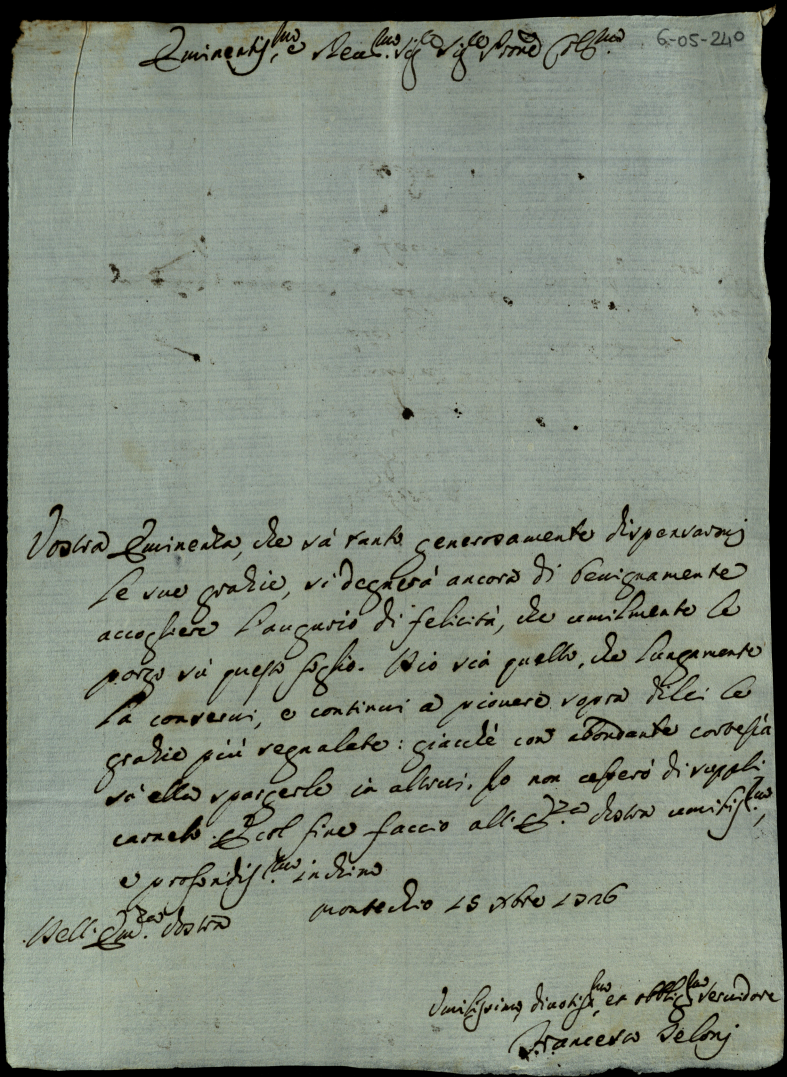 Eminentiss.mo e Rev.mo Sig.re Sig.re Prone Col.mo
6-05-240
Vostra Eminenza, che sà tanto generosamente dispensarmi
le sue grazie, si degnerà ancora di benignamente
accogliere l'augurio di felicità, che umilmente le
porgo sù questo foglio. Dio sia quello, che lungamente
la conservi, e continui a piovere sopra di lei le
grazie più segnalate: giacchè con abondante cortesia
sà ella spargerle in altrui. Io non cesserò di suppli
carnelo. E col fine faccio all' E.za Vostra umiliss.mo,
e profondiss.mo inchino
Dell' Em.za Vostra
Montechio 15 Xbre 1726
Umilissimo, divotiss.mo, et obblig.mo servidore
Francesco